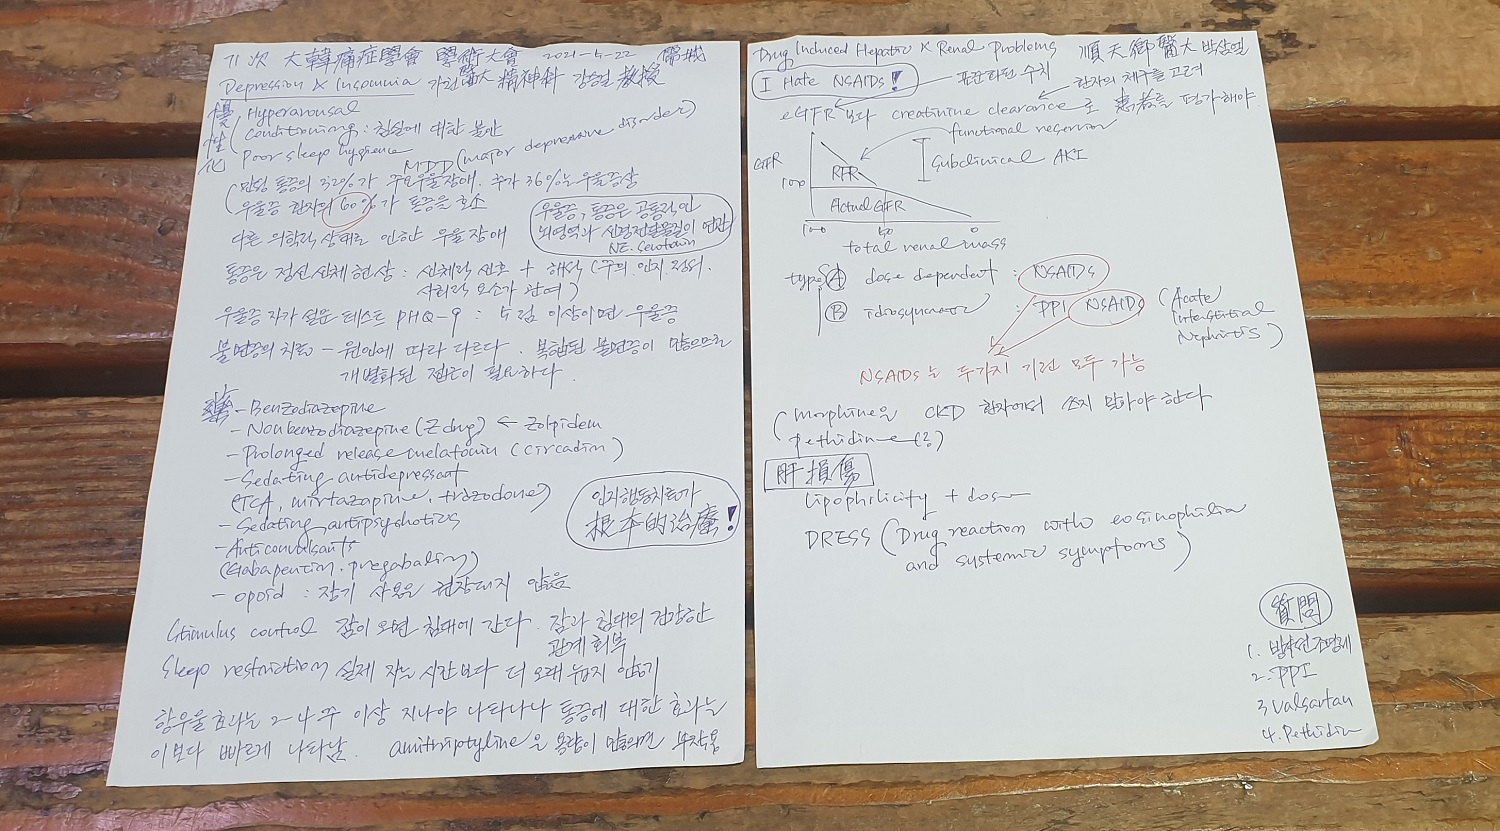 71次 大韓痛症學會 學術大會 2021-5-22
Depression & Insomnia 가천醫大 精神科 강승걸 敎授
慢性化
Hyperarousal
Conditioning : 침실에 대한 불안
Poor sleep hygiene
MDD (major depressive disorder)
만성 통증의 32%가 주요우울장애. 추가 36%는 우울증상
우울증 환자의 60%가 통증을 호소
우울증, 통증은 공통적인
뇌영역과 신경전달물질이 연관
NE. serotonin
다른 의학적 상태로 인한 우울장애
통증은 정신신체 현상 : 신체적 신호 + 해석 (주의. 인지. 정서.
사회적 요소가 관여)
우울증 자가 설문 테스트 PHQ-9 : 5점 이상이면 우울증
불면증의 치료 - 원인에 따라 다르다. 복합된 불면증이 많으므로
개별화된 접근이 필요하다.
藥 - Benzodiazepine
- Nonbenzodiazepine (Z drug) ← Zolpidem
- Prolonged release melatonin (circadin)
- Sedating antidepressant
(TCA, mirtazapine, trazodone)
- Sedating antipsychotics
- Anticonvulsants
(Gabapentin. pregabalin)
- opoid : 장기 사용은 권장되지 않음
인지행동치료가
根本的治療!
Stimulus control 잠이 오면 침대에 간다. 잠과 침대의 건강한
관계 회복
Sleep restriction 실제 자는 시간보다 더 오래 눕지 않기
항우울 효과는 2-4주 이상 지나야 나타나나 통증에 대한 효과는
이보다 빠르게 나타남. amitriptyline은 용량이 많으면 부작용
Drug Induced Hepatic & Renal Problems 順天鄕醫大 박삼엘
I Hate NSAIDs!
표준화된 수치
환자의 체구를 고려
eGFR 보다 creatinine clearance로 患者를 평가해야.
functional reservior
GFR
Subclinical AKI
RFR
100
Actual GFR
100 50 0
total renal mass
type A dose dependent : NSAIDs
B idiosyncratic : PPI NSAIDs (Acute
Interstitial
Nephritis)
NSAIDs는 두가지 기전 모두 가능
(morphine은 CKD 환자에서 쓰지 말아야 한다
pethidine(?)
肝損傷
lipophilicity + dose
DRESS (Drug reaction with eosinophilia
and systemic symptoms)
質問
2. PPI
3 Valsartan
4. Pethidin